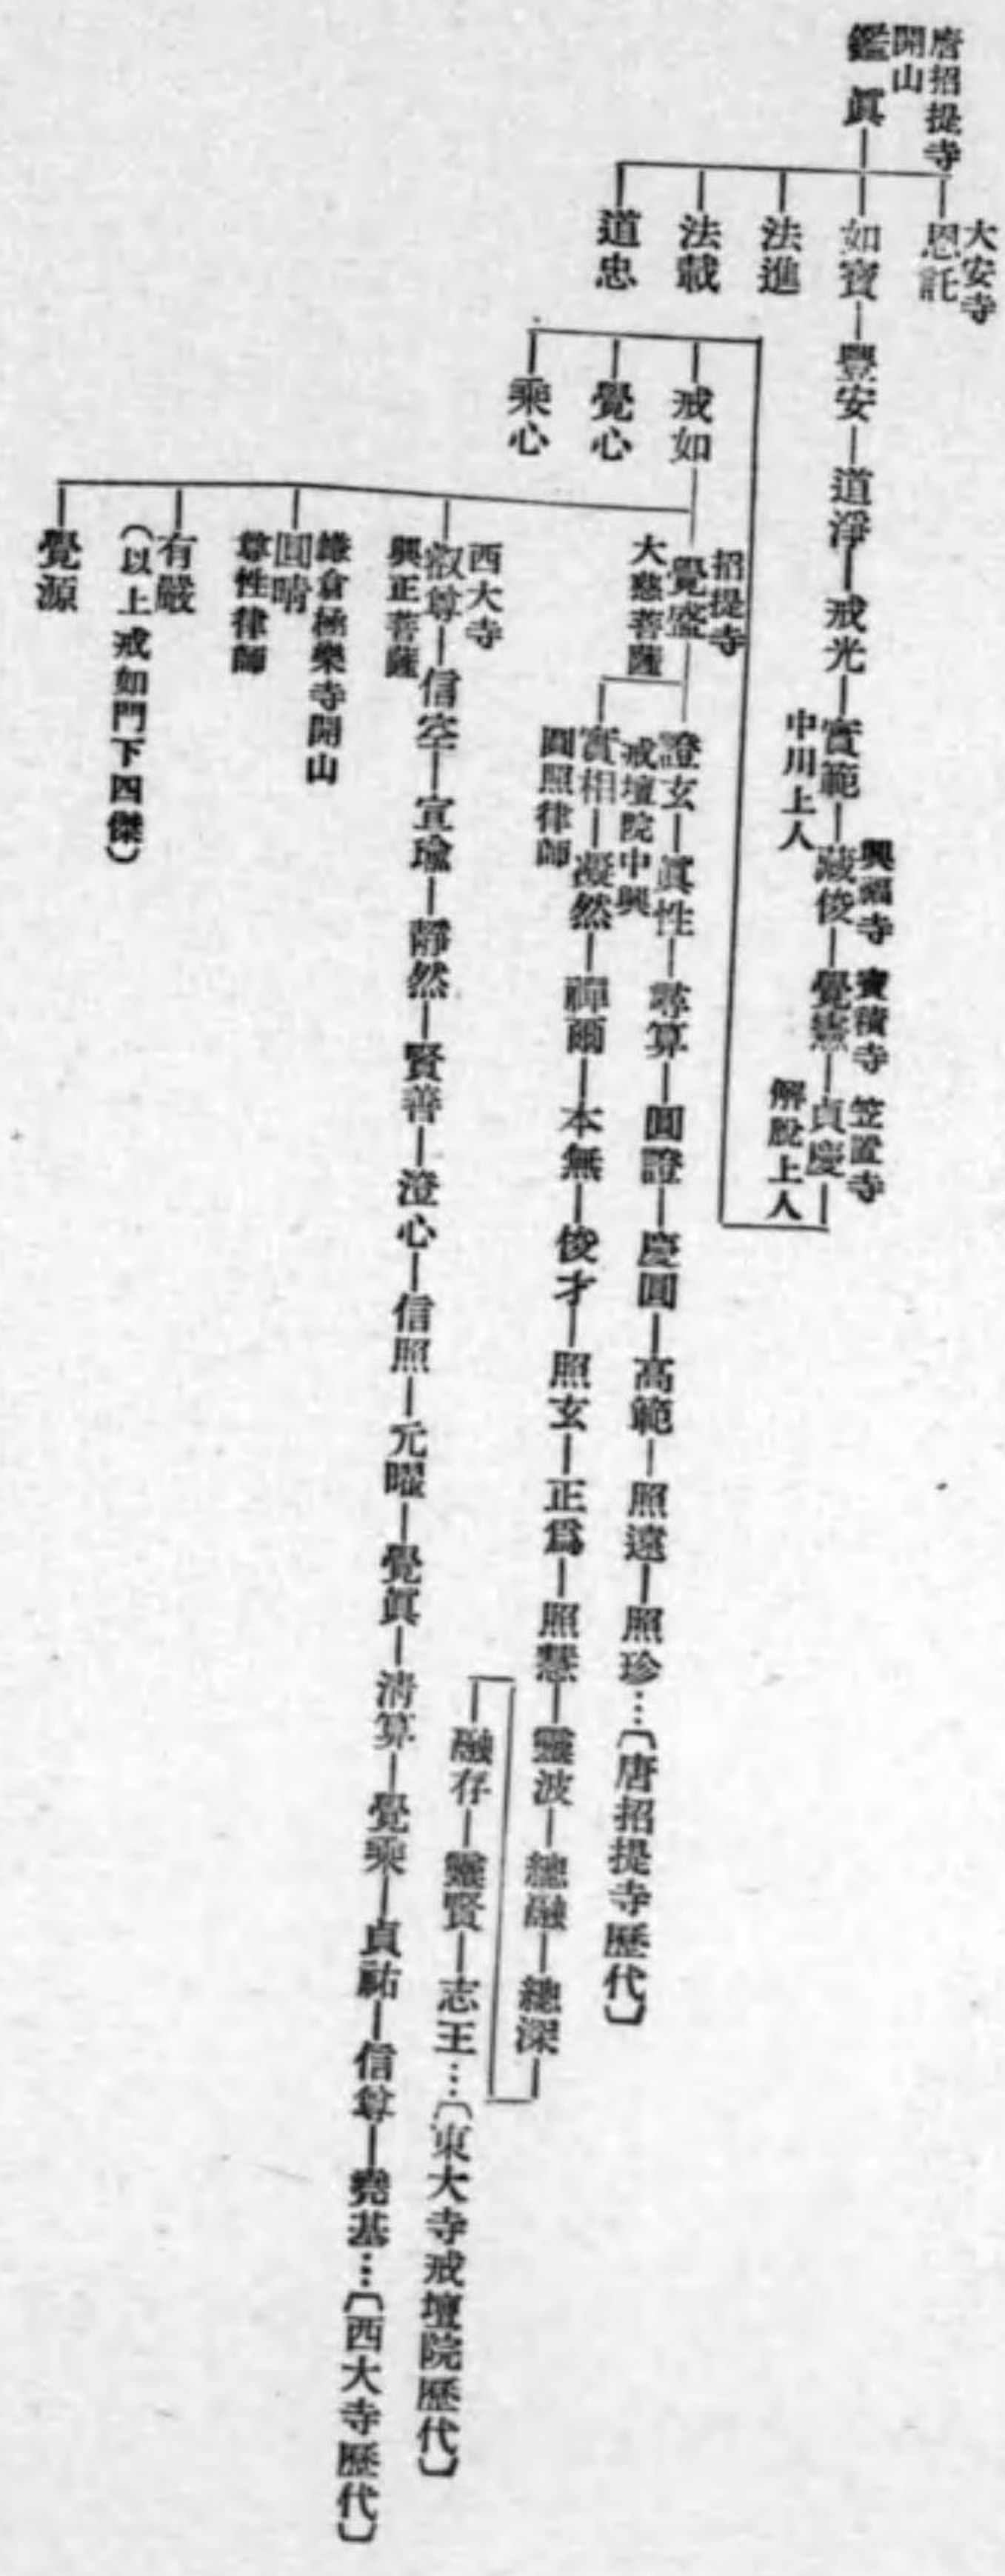 唐招提寺
開山
鑑眞
大安寺
恩託
如寶―豐安―道淨―戒光―實範―藏俊―覺憲―貞慶
中川上人
興福寺
寶積寺
笠置寺
解脫上人
法進
法載
道忠
戒如
覺心
乘心
招提寺
覺盛
大慈菩薩
證玄―眞性―尋算―圓證―慶圓―高範―照遠―照珍…〔唐招提寺歷代〕
戒壇院中興
實相―凝然―禪爾―本無―俊才―照玄―正爲―照慧―靈波―總融―總深
圓照律師
融存―靈賢―志王…〔東大寺戒壇院歷代〕
西大寺
叡尊―信空―宣瑜―靜然―賢善―澄心―信照―元曜―覺眞―淸算―覺乘―貞祐―信尊―堯基…〔西大寺歷代〕
興正菩薩
鎌倉極樂寺開山
圓晴
尊性律師
有嚴
（以上戒如門下四傑）
覺源